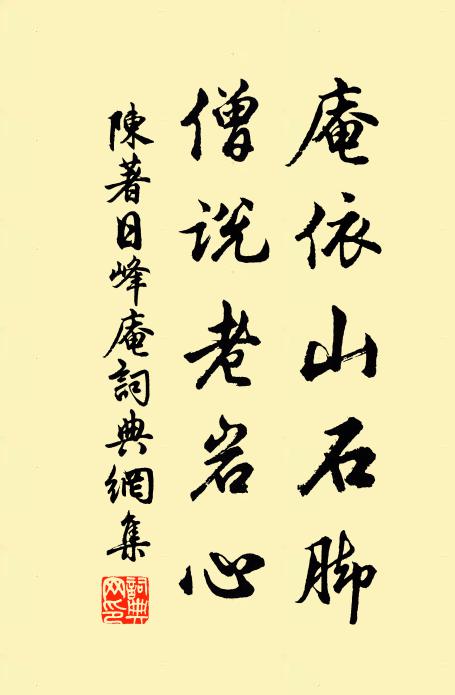 庵依山石脚
僧说老岩心
陳著日峰庵詞典網集
詞典網印